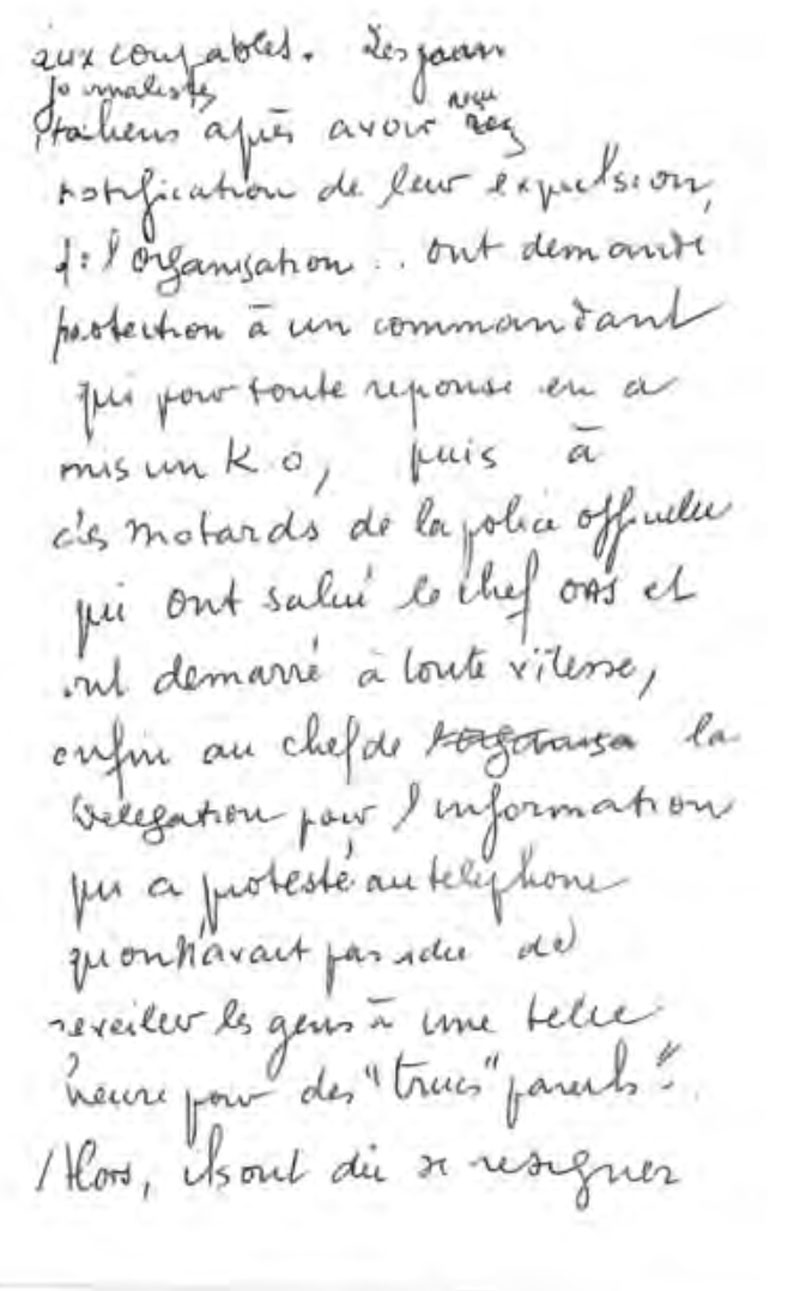 aux coupables. Les journ
journalistes
italiens après avoir reçu
notification de leur expulsion,
d: l'Organisation .. ont demandé
protection à un commandant
qui pour toute reponse en a
mis un K.O, puis à
des motards de la police officielle
qui ont salué le chef OAS et
ont demarré à toute vitesse,
enfin au chef de la
Délégation pour l'information
qui a protesté au telephone
qu'on n'avait pas idée de
reveiller les gens à une telle
heure pour des "trucs" pareils".
Alors, ils ont dû se resigner